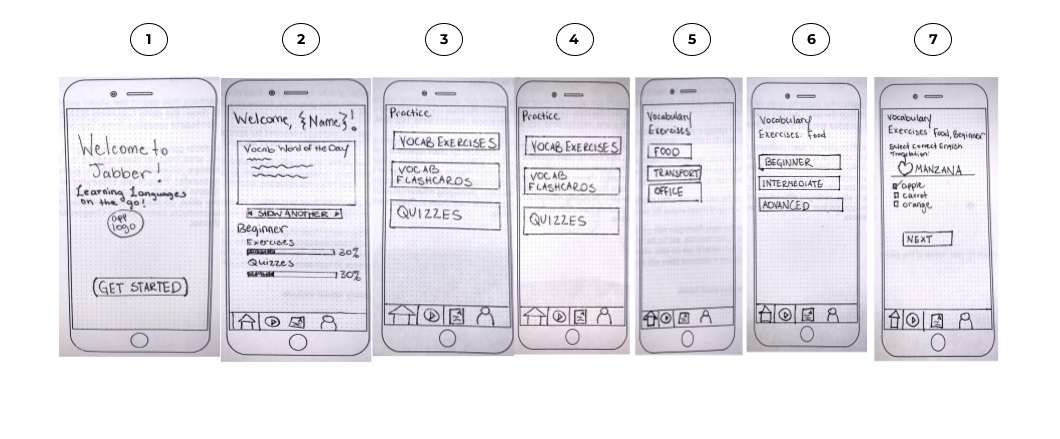 1
2
3
4
5
6
7
Welcome to
Jabber!
Learning Languages
on the go!
app
logo
GET STARTED
Welcome, {Name}!
Vocab Word of the Day
SHOW ANOTHER
Beginner
Exercises
30%
Quizzes
30%
Practice
VOCAB EXERCISES
VOCAB
FLASHCARDS
QUIZZES
Practice
VOCAB EXERCISES
VOCAB
FLASHCARDS
QUIZZES
Vocabulary
Exercises
FOOD
TRANSPORT
OFFICE
Vocabulary
Exercises: Food
BEGINNER
INTERMEDIATE
ADVANCED
Vocabulary
Exercises Food, Beginner
Select Correct English
Translation:
MANZANA
apple
carrot
orange
NEXT